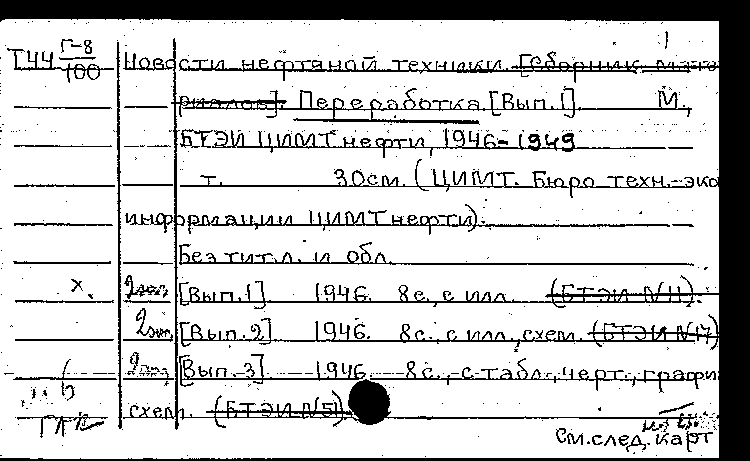 1
Т44 Г-8/100 Новости нефтяной техники. [Сборник мате
риалов]. Переработка. [Вып. 1]. М.,
БТЭИ ЦИМТнефти, 1946-1949
т. 30см. (ЦИМТ. Бюро техн.-эко
информации ЦИМТнефти).
Без тит.л. и обл.
х. 2экз. [Вып.1]. 1946. 8с., с илл. (БТЭИ №11).
2экз. [Вып.2] 1946. 8с., с илл., схем. (БТЭИ №17)
2экз. [Вып.3] 1946. 8с., с табл., черт., графи
схем. (БТЭИ №5).
См.след.карт